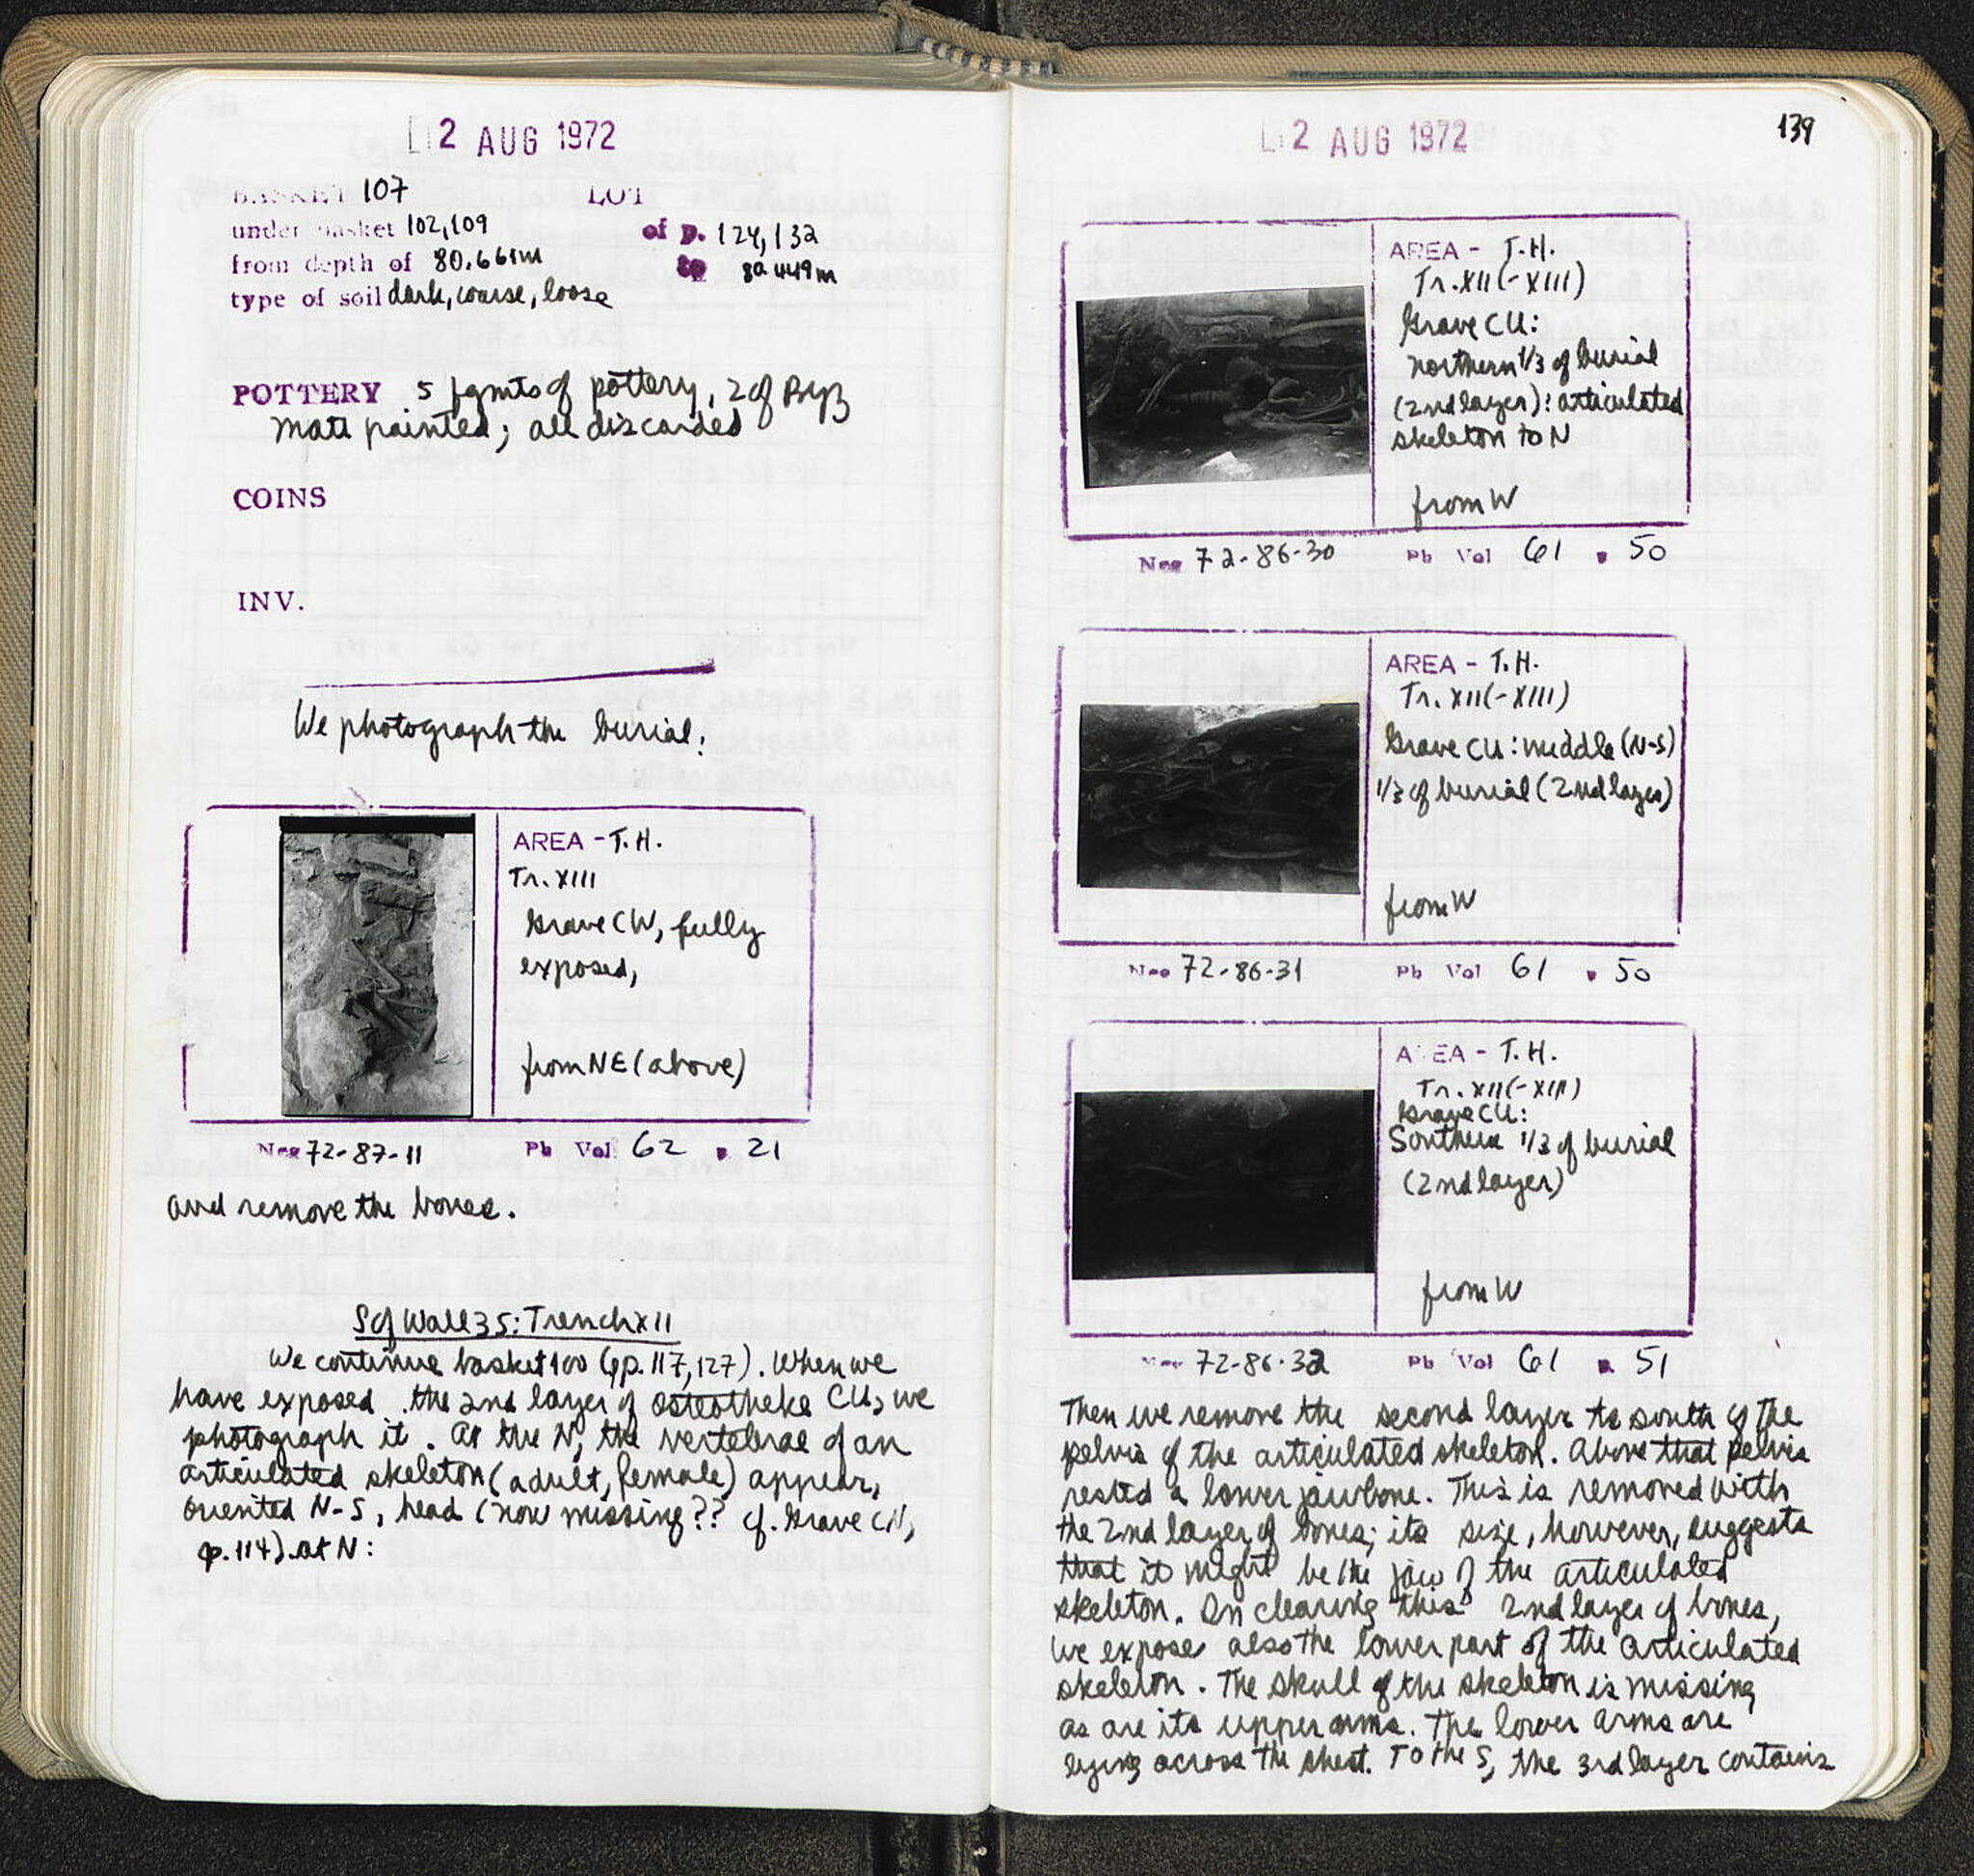 2 AUG 1972
BASKET 107 LOT
under basket 102,109 of p. 124,132
from depth of 80.661m to 80.449m
type of soil dark, coarse, loose
POTTERY 5 fgmts of pottery, 2 of Byz
matt painted; all discarded
COINS
INV.
We photograph the burial:
AREA - T.H.
Tr. XIII
Grave CW, fully
exposed,
from NE (above)
Neg 72-87-11 Pb Vol 62 p. 21
and remove the bones.
S of Wall 35: Trench XII
We continue basket 100 (pp. 117, 127). When we
have exposed the 2nd layer of osteotheke CU, we
photograph it. At the N, the vertebrae of an
articulated skeleton (adult, female) appear,
oriented N-S, head (now missing?? cf. Grave CN,
p. 114) at N:
2 AUG 1972
139
AREA - T.H.
Tr. XII (-XIII)
Grave CU:
northern 1/3 of burial
(2nd layer): articulated
skeleton to N
from W
Neg 72-86-30 Pb Vol 61 p 50
AREA - T.H.
Tr. XII (-XIII)
Grave CU: middle (N-S)
1/3 of burial (2nd layer)
from W
Neg 72-86-31 Pb Vol 61 p 50
AREA - T.H.
Tr. XII (-XIII)
Grave CU:
Southern 1/3 of burial
(2nd layer)
from W
Neg 72-86-32 Pb Vol 61 p. 51
Then we remove the second layer to south of the
pelvis of the articulated skeleton. Above that pelvis
rested a lower jawbone. This is removed with
the 2nd layer of bones; its size, however, suggests
that it might be the jaw of the articulated
skeleton. In clearing this 2nd layer of bones,
we expose also the lower part of the articulated
skeleton. The skull of the skeleton is missing,
as are its upper arms. The lower arms are
lying across the chest. To the S, the 3rd layer contains